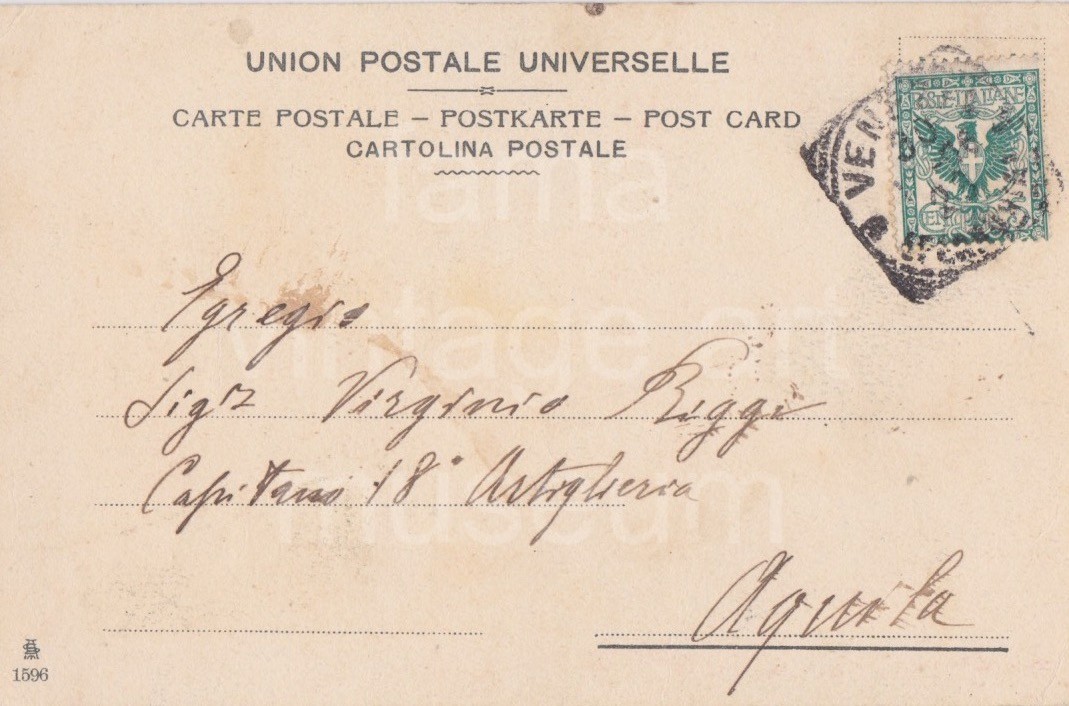 UNION POSTALE UNIVERSELLE
CARTE POSTALE – POSTKARTE – POST CARD
CARTOLINA POSTALE
POSTE ITALIANE
VEN
Egregio
Sigr Virginio Riggi
Capitano 18° Artiglieria
Aquila
1596
lama
vintage art
museum